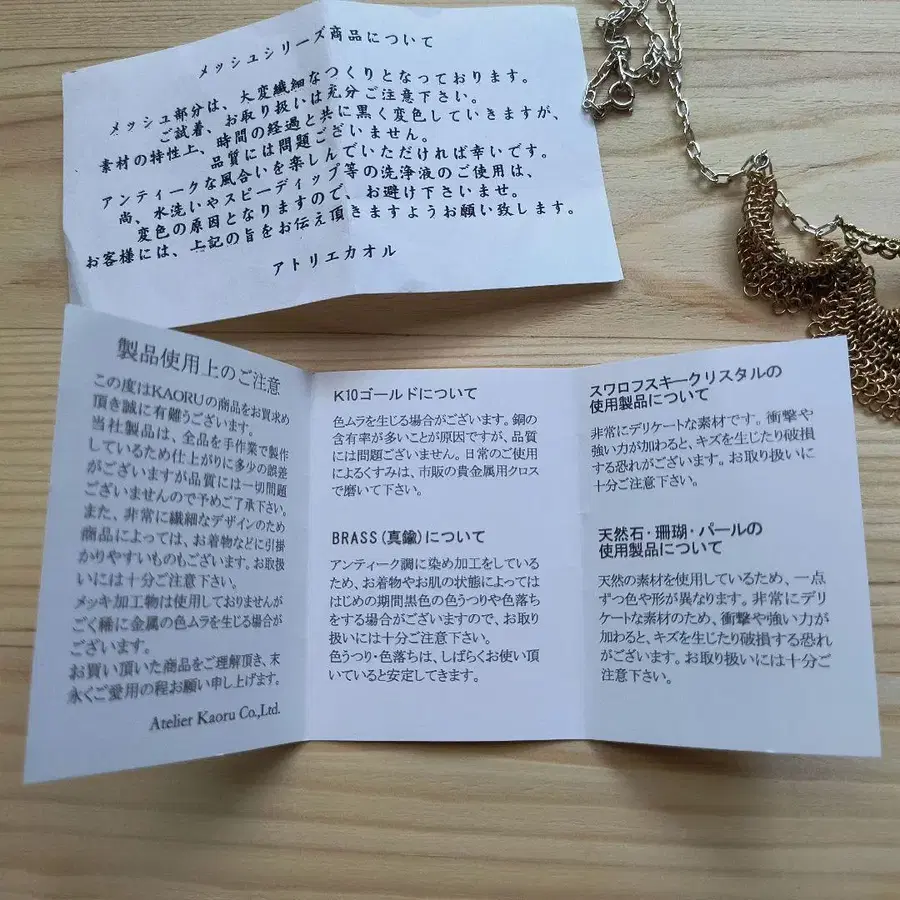 メッシュシリーズ商品について
メッシュ部分は、大変繊細なつくりとなっております。
ご試着、お取り扱いは充分ご注意下さい。
素材の特性上、時間の経過と共に黒く変色していきますが、
品質には問題ございません。
アンティークな風合いを楽しんでいただければ幸いです。
尚、水洗いやスピーディップ等の洗浄液のご使用は、
変色の原因となりますので、お避け下さいませ。
お客様には、上記の旨をお伝え頂きますようお願い致します。
アトリエカオル
製品使用上のご注意
この度はKAORUの商品をお買求め
頂き誠に有難うございます。
当社製品は、全品を手作業で製作
しているため仕上がりに多少の誤差
がございますが品質には一切問題
ございませんので予めご了承下さい。
また、非常に繊細なデザインのため
商品によっては、お着物などに引掛
かりやすいものもございます。お取扱
いには十分ご注意下さい。
メッキ加工物は使用しておりませんが
ごく稀に金属の色ムラを生じる場合が
ございます。
お買い頂いた商品をご理解頂き、末
永くご愛用の程お願い申し上げます。
Atelier Kaoru Co.,Ltd.
K10ゴールドについて
色ムラを生じる場合がございます。銅の
含有率が多いことが原因ですが、品質
には問題ございません。日常のご使用
によるくすみは、市販の貴金属用クロス
で磨いて下さい。
BRASS(真鍮)について
アンティーク調に染め加工をしている
ため、お着物やお肌の状態によっては
はじめの期間黒色の色うつりや色落ち
をする場合がございますので、お取り
扱いには十分ご注意下さい。
色うつり・色落ちは、しばらくお使い頂
いていると安定してきます。
スワロフスキークリスタルの
使用製品について
非常にデリケートな素材です。衝撃や
強い力が加わると、キズを生じたり破損
する恐れがございます。お取り扱いに
十分ご注意下さい。
天然石・珊瑚・パールの
使用製品について
天然の素材を使用しているため、一点
ずつ色や形が異なります。非常にデリ
ケートな素材のため、衝撃や強い力が
加わると、キズを生じたり破損する恐れ
がございます。お取り扱いには十分ご
注意下さい。